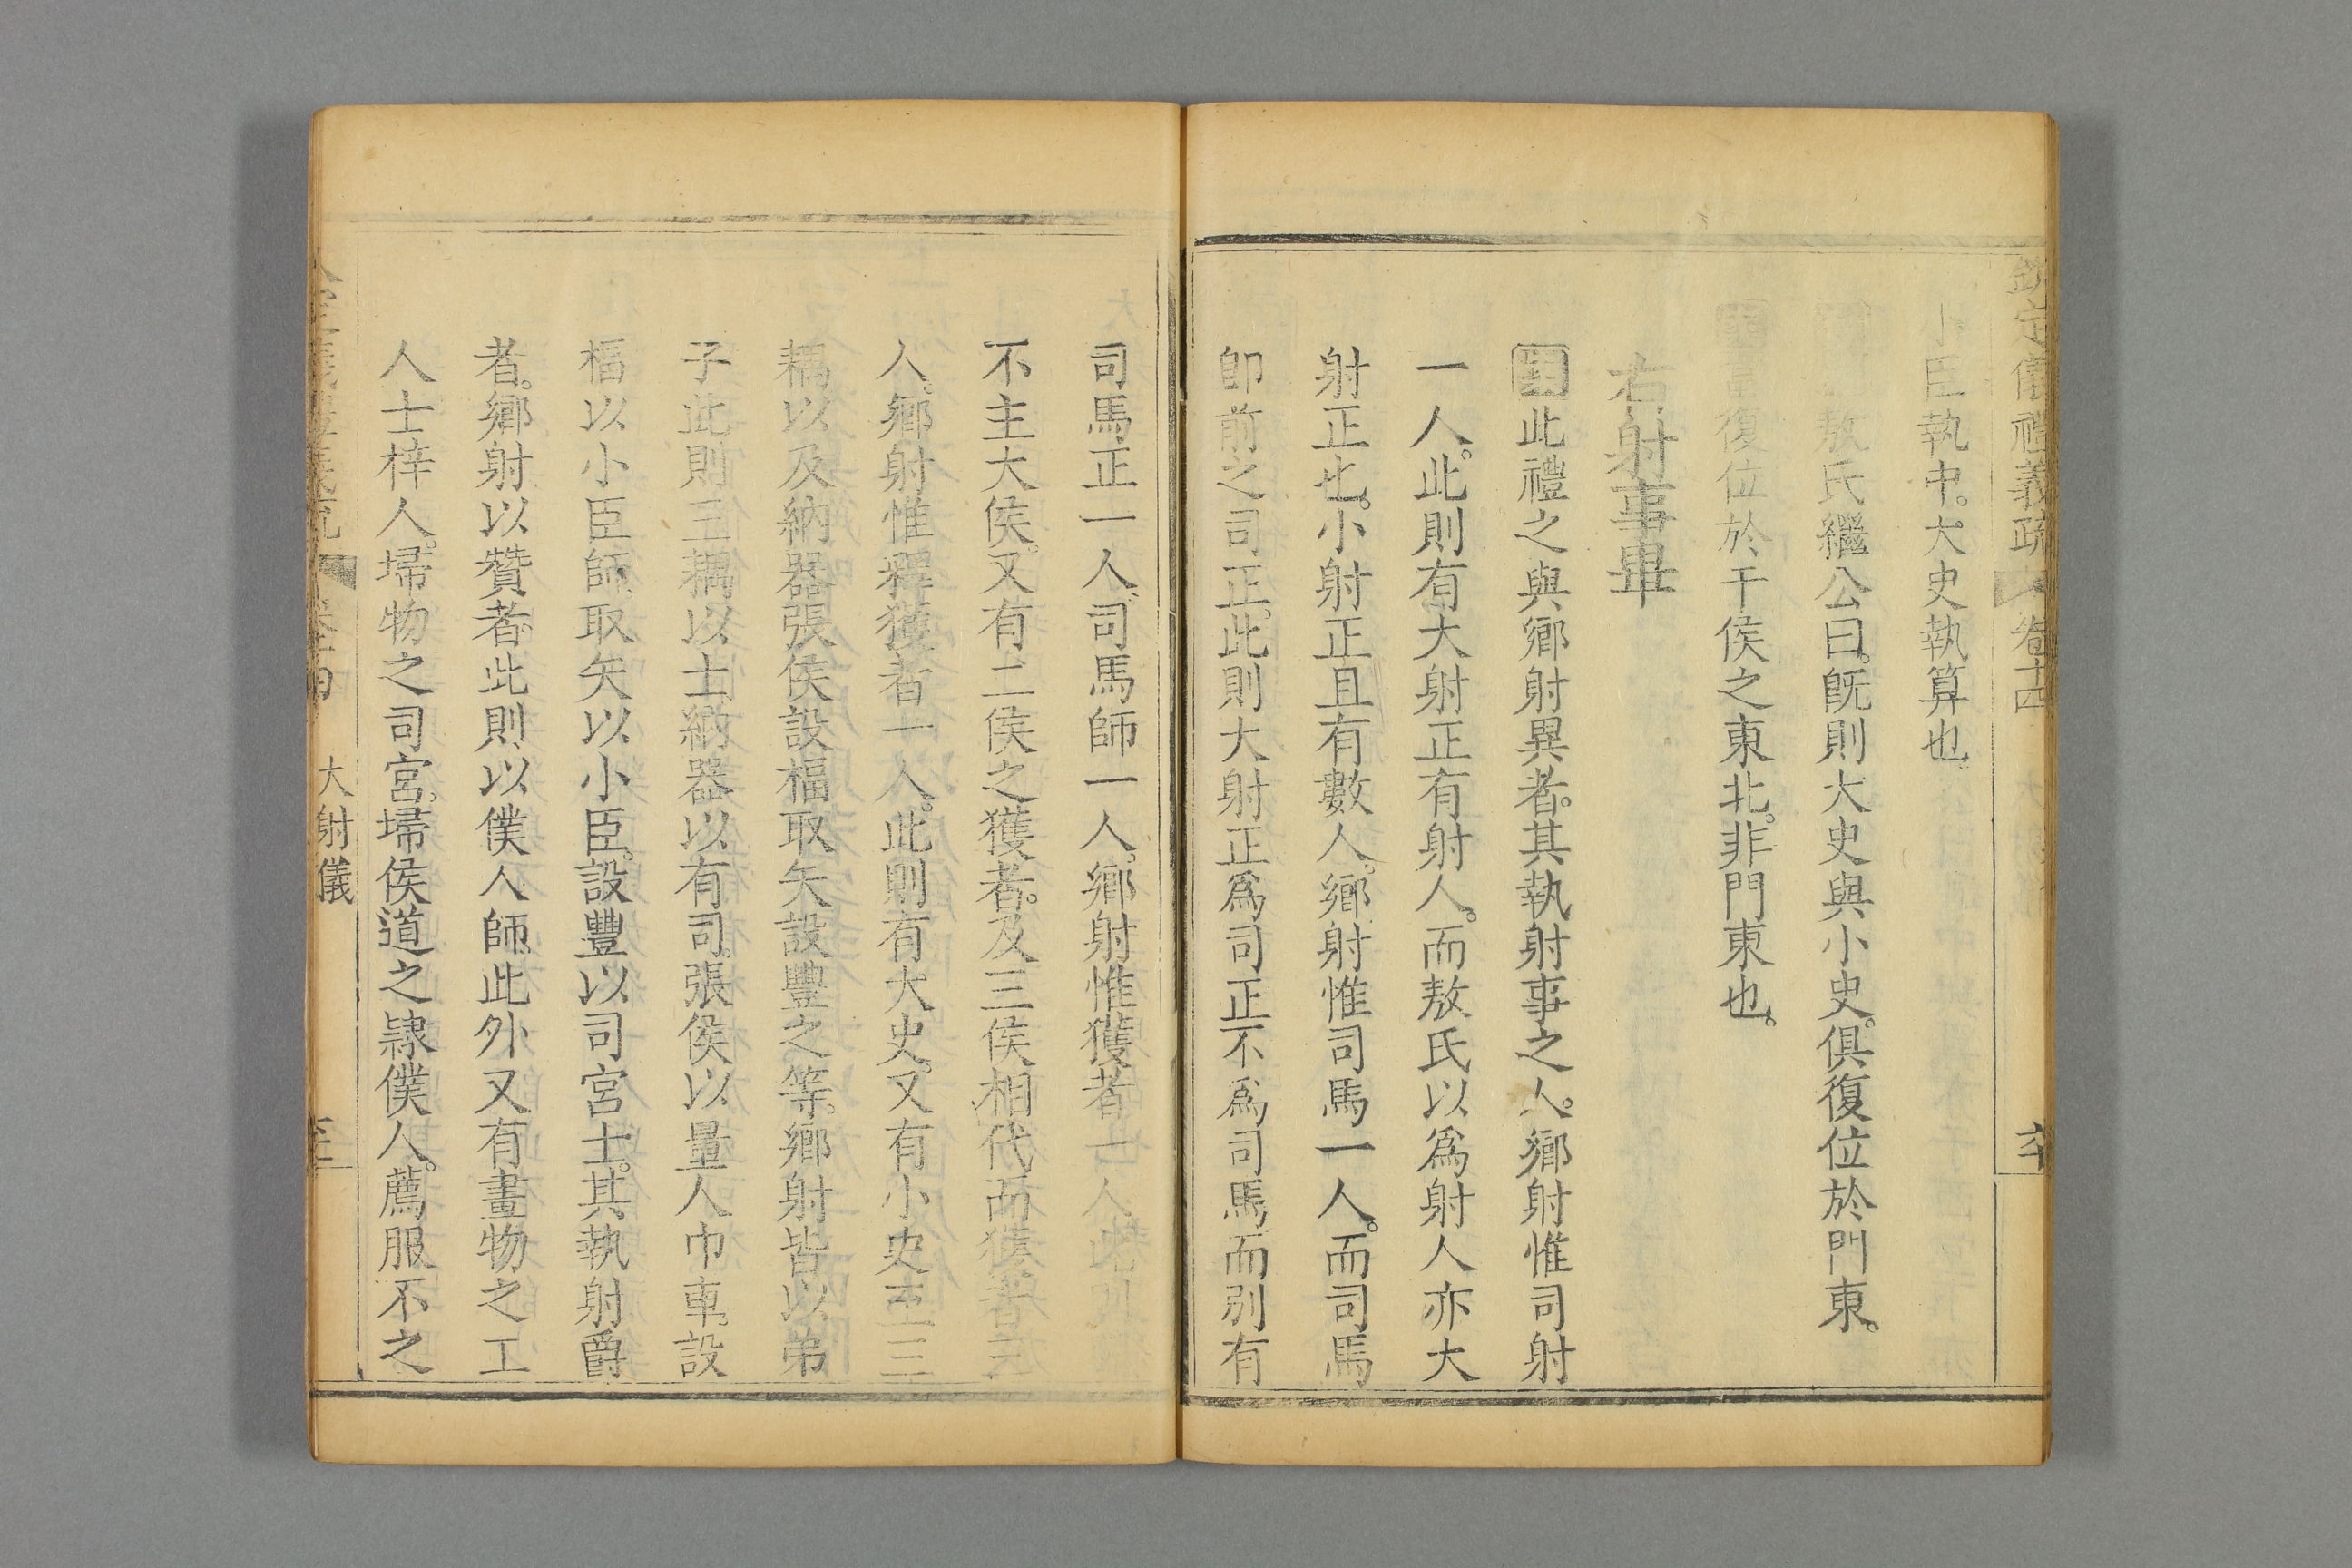 欽定儀禮義疏 卷十四 六十
小臣執中。大史執算也
敖氏繼公曰。旣則大史與小史。俱復位於門東。
復位於干侯之東北。非門東也。
右射事畢
此禮之與鄉射異者。其執射事之人。鄉射惟司射
一人。此則有大射正有射人。而敖氏以爲射人亦大
射正也。小射正且有數人。鄉射惟司馬一人。而司馬
卽前之司正。此則大射正爲司正不爲司馬而別有
司馬正一人。司馬師一人。鄉射惟獲者一人此則
不主大侯。又有二侯之獲者。及三侯相代而獲者三
人。鄉射惟釋獲者一人。此則有大史。又有小史至三
耦以及納器張侯設楅取矢設豐之等。鄉射皆以弟
子此則三耦以士納器以有司。張侯以量人巾車。設
楅以小臣師。取矢以小臣。設豐以司宮士。其執射爵
者。鄉射以贊者。此則以僕人師。此外又有畫物之工
人士梓人。埽物之司宮。埽侯道之隷僕人。薦服不之
大射儀